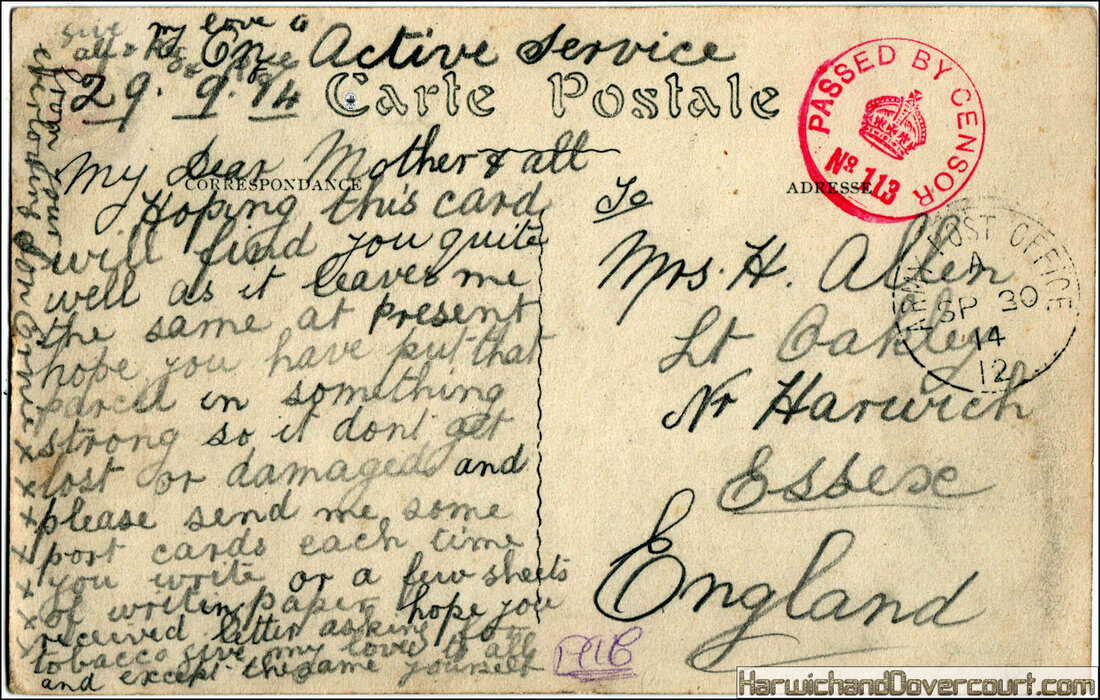 give my love to
all
On Active Service
29.9.14
Carte Postale
PASSED BY CENSOR
Nº 113
CORRESPONDANCE
ADRESSE
My Dear Mother & all
Hoping this card
will find you quite
well as it leaves me
the same at present
hope you have put that
parcel in something
strong so it dont get
lost or damaged and
please send me some
post cards each time
you write or a few sheets
of writin paper hope you
received letter asking fo
tobacco give my love to all
and except the same yourself
x from your
Everlording son Ernie x x x x x x x
To
Mrs. H. Allen
Lt Oakley
Nr Harwich
Essex
England
ARMY POST OFFICE
A
SP 30
14
12
HarwichandDovercourt.com